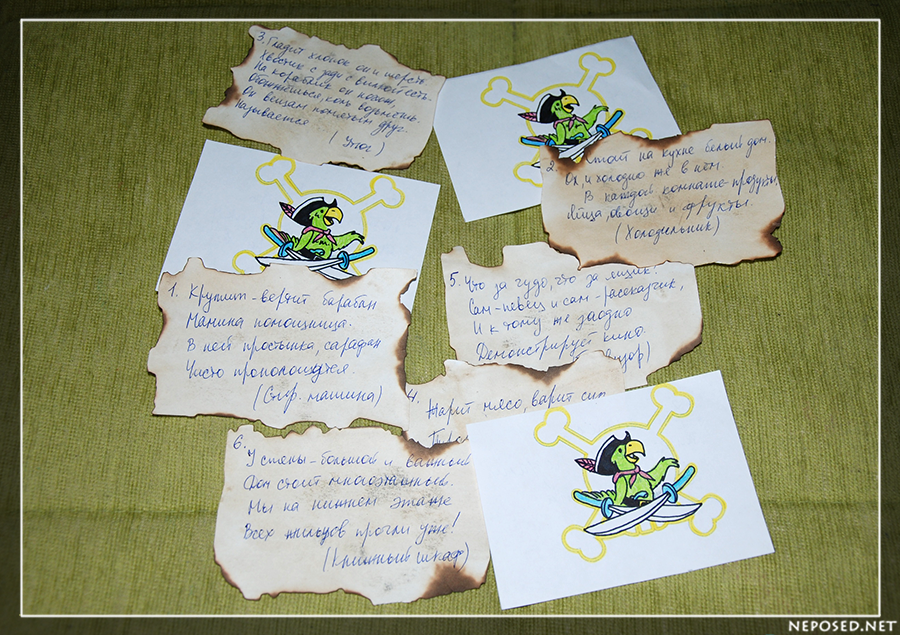 3. Гладит хлопок он и шерсть.
Хвостик с зади с вилкой есть.
На кораблик он похож,
Обожжёшься, коль возьмёшь.
Он вещам помятым друг.
Называется
(Утюг)
2. Стоит на кухне белый дом.
Ох, и холодно же в нём.
В каждой комнате продукты,
Яйца, овощи и фрукты.
(Холодильник)
1. Крутит-вертит барабан
Мамина помощница.
В ней простынка, сарафан
Чисто прополощутся.
(Стир. машина)
5. Что за чудо, что за ящик?
Сам-певец и сам-рассказчик,
И к тому же заодно
Демонстрирует кино.
4. Жарит мясо, варит суп,
6. У стены-большой и важный
Дом стоит многоэтажный.
Мы на нижнем этаже
Всех жильцов прочли уже!
(Книжный шкаф)
NEPOSED.NET